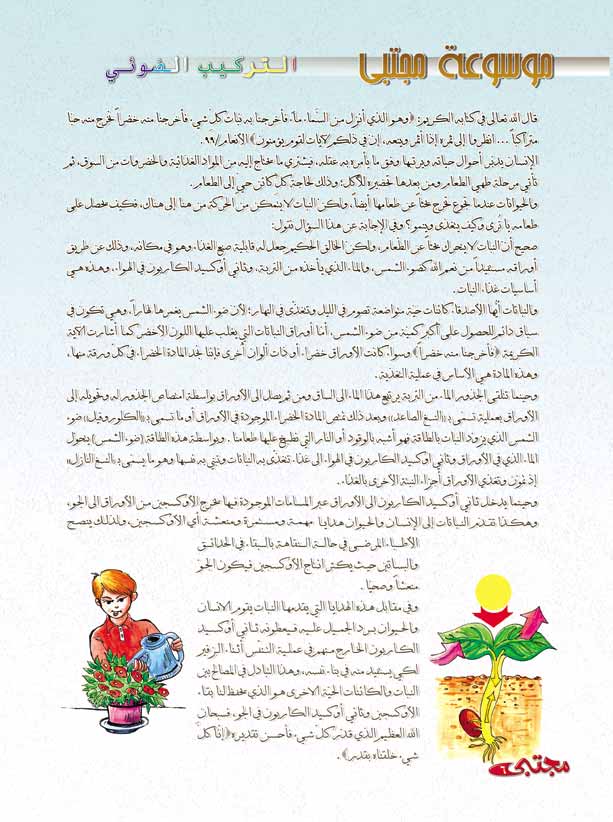 موسوعة مجتبى
التركيب الضوئي
قال الله تعالى في كتابه الكريم: ﴿وهو الذي أنزل من السماء ماء فأخرجنا به نبات كل شيء فأخرجنا منه خضراً نخرج منه حباً
متراكباً ... انظروا إلى ثمره إذا أثمر وينعه، إن في ذلكم لآيات لقوم يؤمنون﴾ الأنعام/٩٩.
الإنسان يدبّر أحوال حياته ويرتبها وفق ما يأمره به عقله، فيشتري ما يحتاج إليه من المواد الغذائية والخضروات من السوق، ثم
تأتي مرحلة طهي الطعام ومن بعدها تحضيره للأكل؛ وذلك لحاجة كل كائن حي إلى الطعام.
والحيوانات عندما تجوع تخرج بحثاً عن طعامها أيضاً، ولكن النبات لا يتمكن من الحركة من هنا إلى هناك، فكيف يحصل على
طعامه يا ترى وكيف يتغذى وينمو؟ وفي الإجابة عن هذا السؤال نقول:
صحيح أن النبات لا يتحرك بحثاً عن الطعام، ولكن الخالق الحكيم جعل له قابلية صنع الغذاء وهو في مكانه، وذلك عن طريق
أوراقه مستفيداً من نعم الله كضوء الشمس، والماء الذي يأخذه من التربة، وثاني أوكسيد الكاربون في الهواء، وهذه هي
أساسيات غذاء النبات.
والنباتات أيها الأصدقاء كائنات حية متواضعة تصوم في الليل وتتغذى في النهار؛ لأن ضوء الشمس يغمرها نهاراً، وهي تكون في
سباق دائم للحصول على أكبر كمية من ضوء الشمس، أما أوراق النباتات التي يغلب عليها اللون الأخضر كما أشارت الآية
الكريمة ﴿فأخرجنا منه خضراً﴾ وسواء كانت الأوراق خضراء أو ذات ألوان أخرى فإننا نجد المادة الخضراء في كل ورقة منها،
وهذه المادة هي الأساس في عملية التغذية.
وحينما تلتقي الجذور الماء من التربة يرتفع هذا الماء إلى الساق ومن ثم يصل الى الأوراق بواسطة امتصاص الجذور له وتحويله إلى
الأوراق بعملية تسمى بـ«النسغ الصاعد» وبعد ذلك تمتص المادة الخضراء الموجودة في الأوراق أو ما تسمى بـ«الكلوروفيل» ضوء
الشمس الذي يزود النبات بالطاقة فهو أشبه بالوقود أو النار التي نطبخ عليها طعامنا. وبواسطة هذه الطاقة (ضوء الشمس) يتحول
الماء الذي في الأوراق وثاني اوكسيد الكاربون في الهواء الى غذاء تتغذى به النباتات وتبني به نفسها وهو ما يسمى بـ«النسغ النازل»
إذ تموّن وتغذي الأوراق أجزاء النبتة الأخرى بالغذاء.
وحينما يدخل ثاني أوكسيد الكاربون الى الأوراق عبر المسامات الموجودة فيها يخرج الأوكسجين من الأوراق الى الجو،
وهكذا تقدم النباتات إلى الإنسان والحيوان هدايا مهمة ومستمرة ومنعشة أي الأوكسجين، ولذلك ينصح
الأطباء المرضى في حالة النقاهة بالبقاء في الحدائق
والبساتين حيث يكثر انتاج الأوكسجين فيكون الجو
منعشاً وصحياً.
وفي مقابل هذه الهدايا التي يقدمها النبات يقوم الانسان
والحيوان برد الجميل عليه فيعطونه ثاني أوكسيد
الكاربون الخارج منهم في عملية التنفس أثناء الزفير
لكي يستفيد منه في بناء نفسه، وهذا التبادل في المصالح بين
النبات والكائنات الحية الاخرى هو الذي يحفظ لنا بقاء
الأوكسجين وثاني أوكسيد الكاربون في الجو، فسبحان
الله العظيم الذي قدّر كل شيء فأحسن تقديره ﴿إنا كل
شيء خلقناه بقدر﴾.
مجتبى ٦